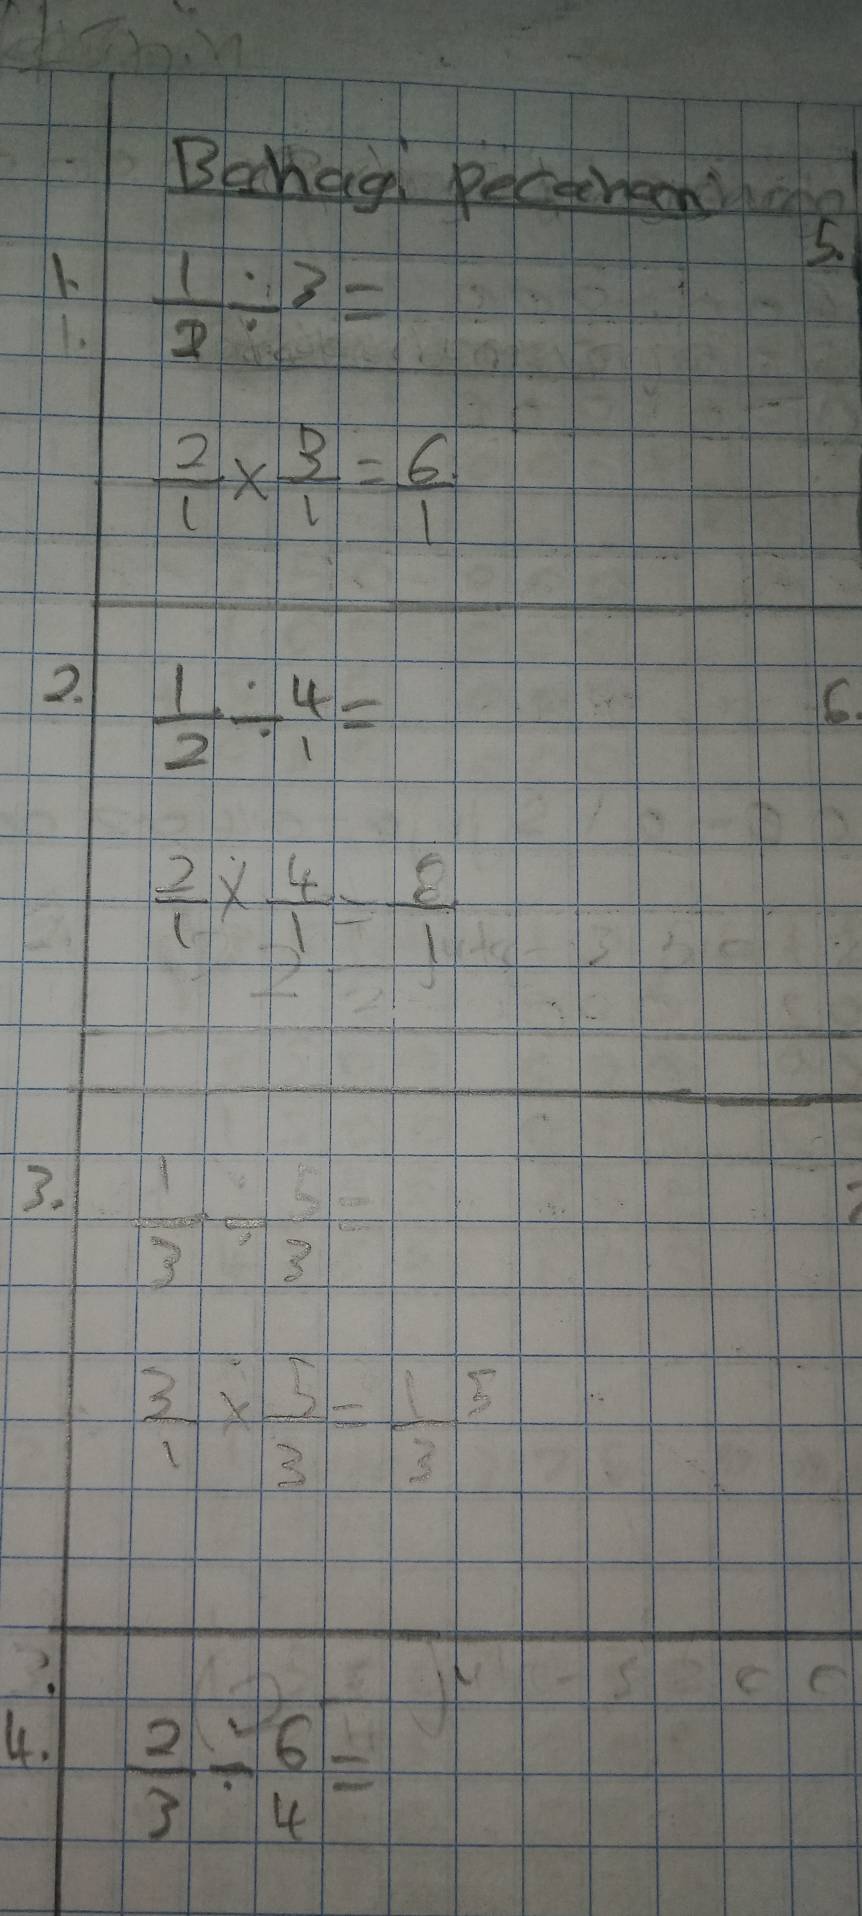 Bahagi pecahan
5.
1. 1/2 ÷ 3 =
1.
2/1 × 3/1 = 6/1
2. 1/2 ÷ 4/1 =
6.
2/1 × 4/1 = 8/1
3. 1/3 ÷ 5/3 =
3/1 × 5/3 = 15/3
4. 2/3 ÷ 6/4 =